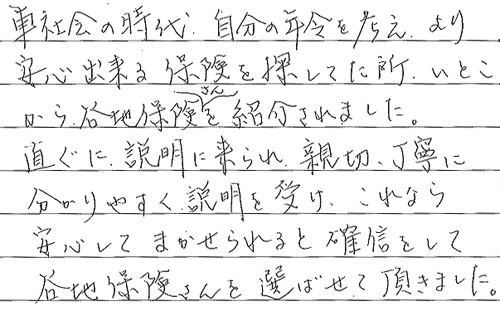 車社会の時代、自分の年令を考え、より
安心出来る保険を探してた所、いとこ
から谷地保険さんを紹介されました。
直ぐに、説明に来られ、親切、丁寧に
分かりやすく説明を受け、これなら
安心してまかせられると確信をして
谷地保険さんを選ばせて頂きました。